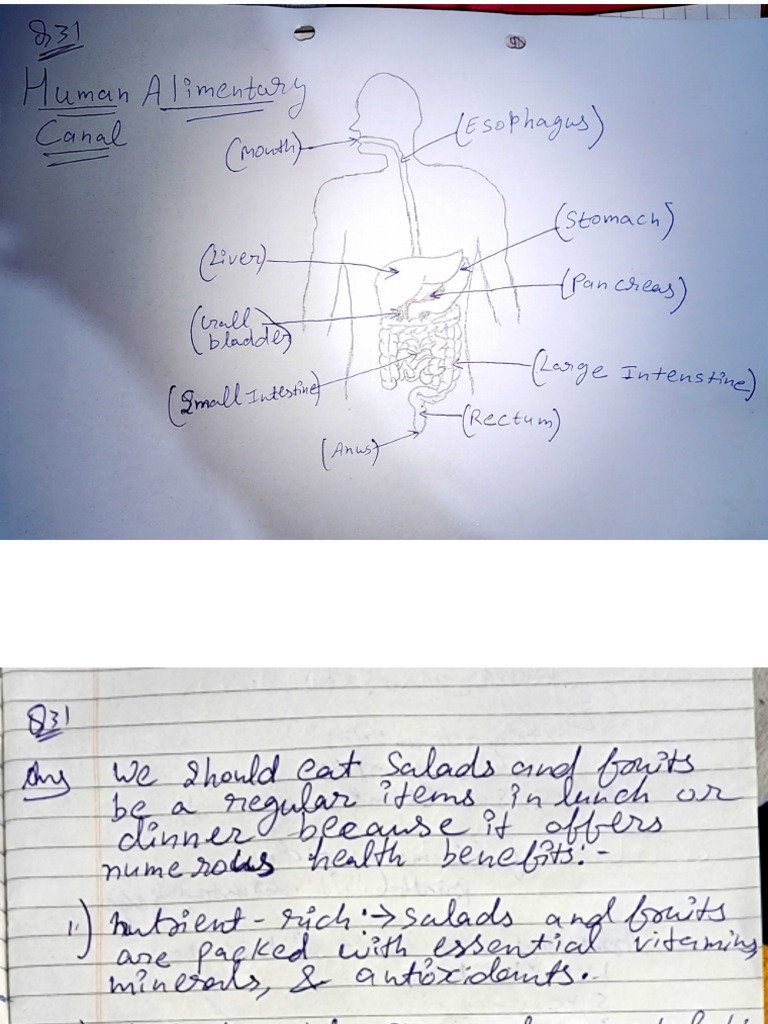 Q31
Human Alimentary
Canal
(Mouth)
(Esophagus)
(Stomach)
(Liver)
(Pancreas)
(Gall
bladder)
(Large Intenstine)
(Small Intestine)
(Rectum)
(Anus)
Q31
Ans we should eat Salads and fruits
be a regular items in lunch or
dinner because it offers
numerous health benefits:-
1.) nutrient-rich:→ salads and fruits
are packed with essential vitamins,
minerals, & antioxidants.